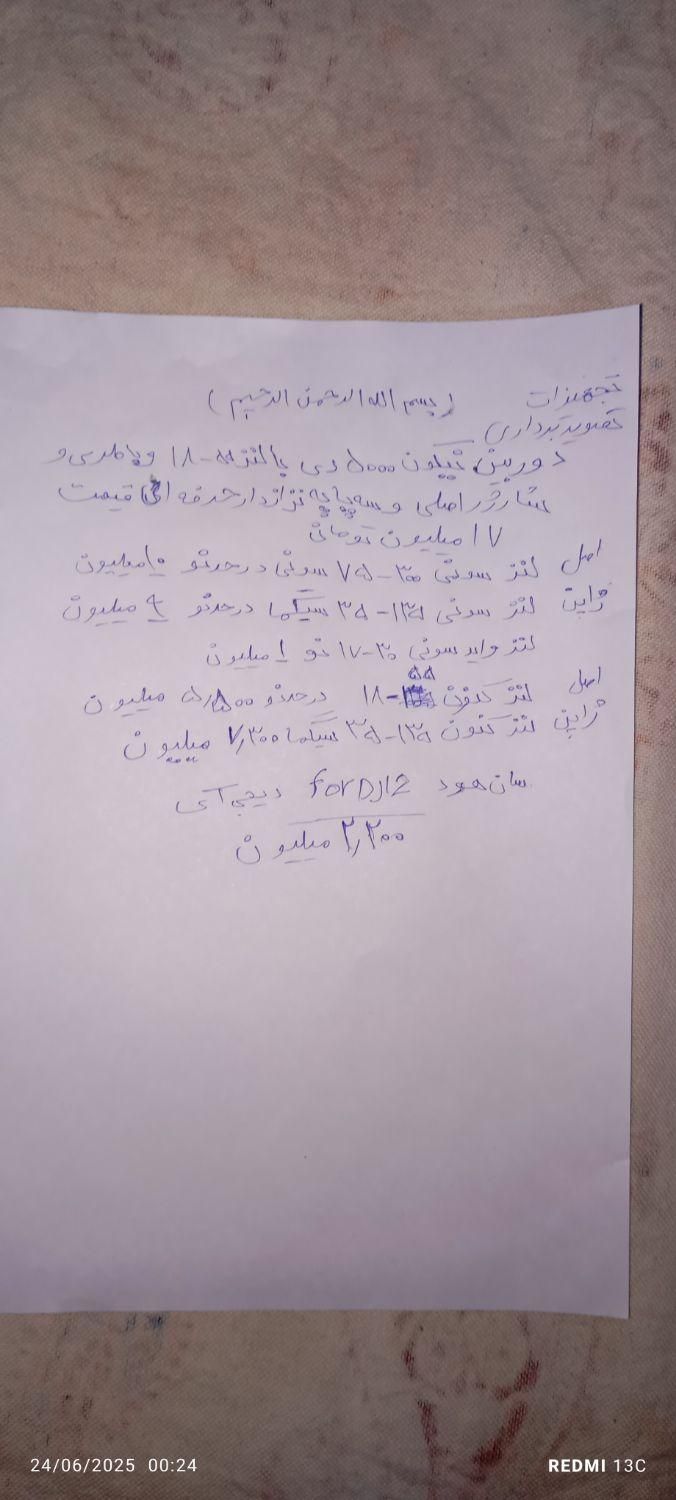 تجهیزات (بسم الله الرحمن الرحیم)
تصویربرداری
دوربین نیکون ۵۰۰۰ دی با لنز ۵۵-۱۸ و باطری و
شارژر اصلی و سه پایه تراز دار حرفه ای قیمت
۱۷ میلیون تومانی
اصل لنز سونی ۳۰۰-۷۵ سونی در حد نو ۱۰ میلیون
ژاپن لنز سونی ۱۳۵-۳۵ سیگما در حد نو ۹ میلیون
لنز واید سونی ۳۰-۱۷ نو ۱۰ میلیون
اصل لنز کنون ۵۵-۱۸ در حد نو ۵/۵۰۰ میلیون
ژاپن لنز کنون ۱۳۵-۳۵ سیگما ۷,۳۰۰ میلیون
سان هود for DJI2 دیجی آی
۲,۲۰۰ میلیون
24/06/2025 00:24 REDMI 13C